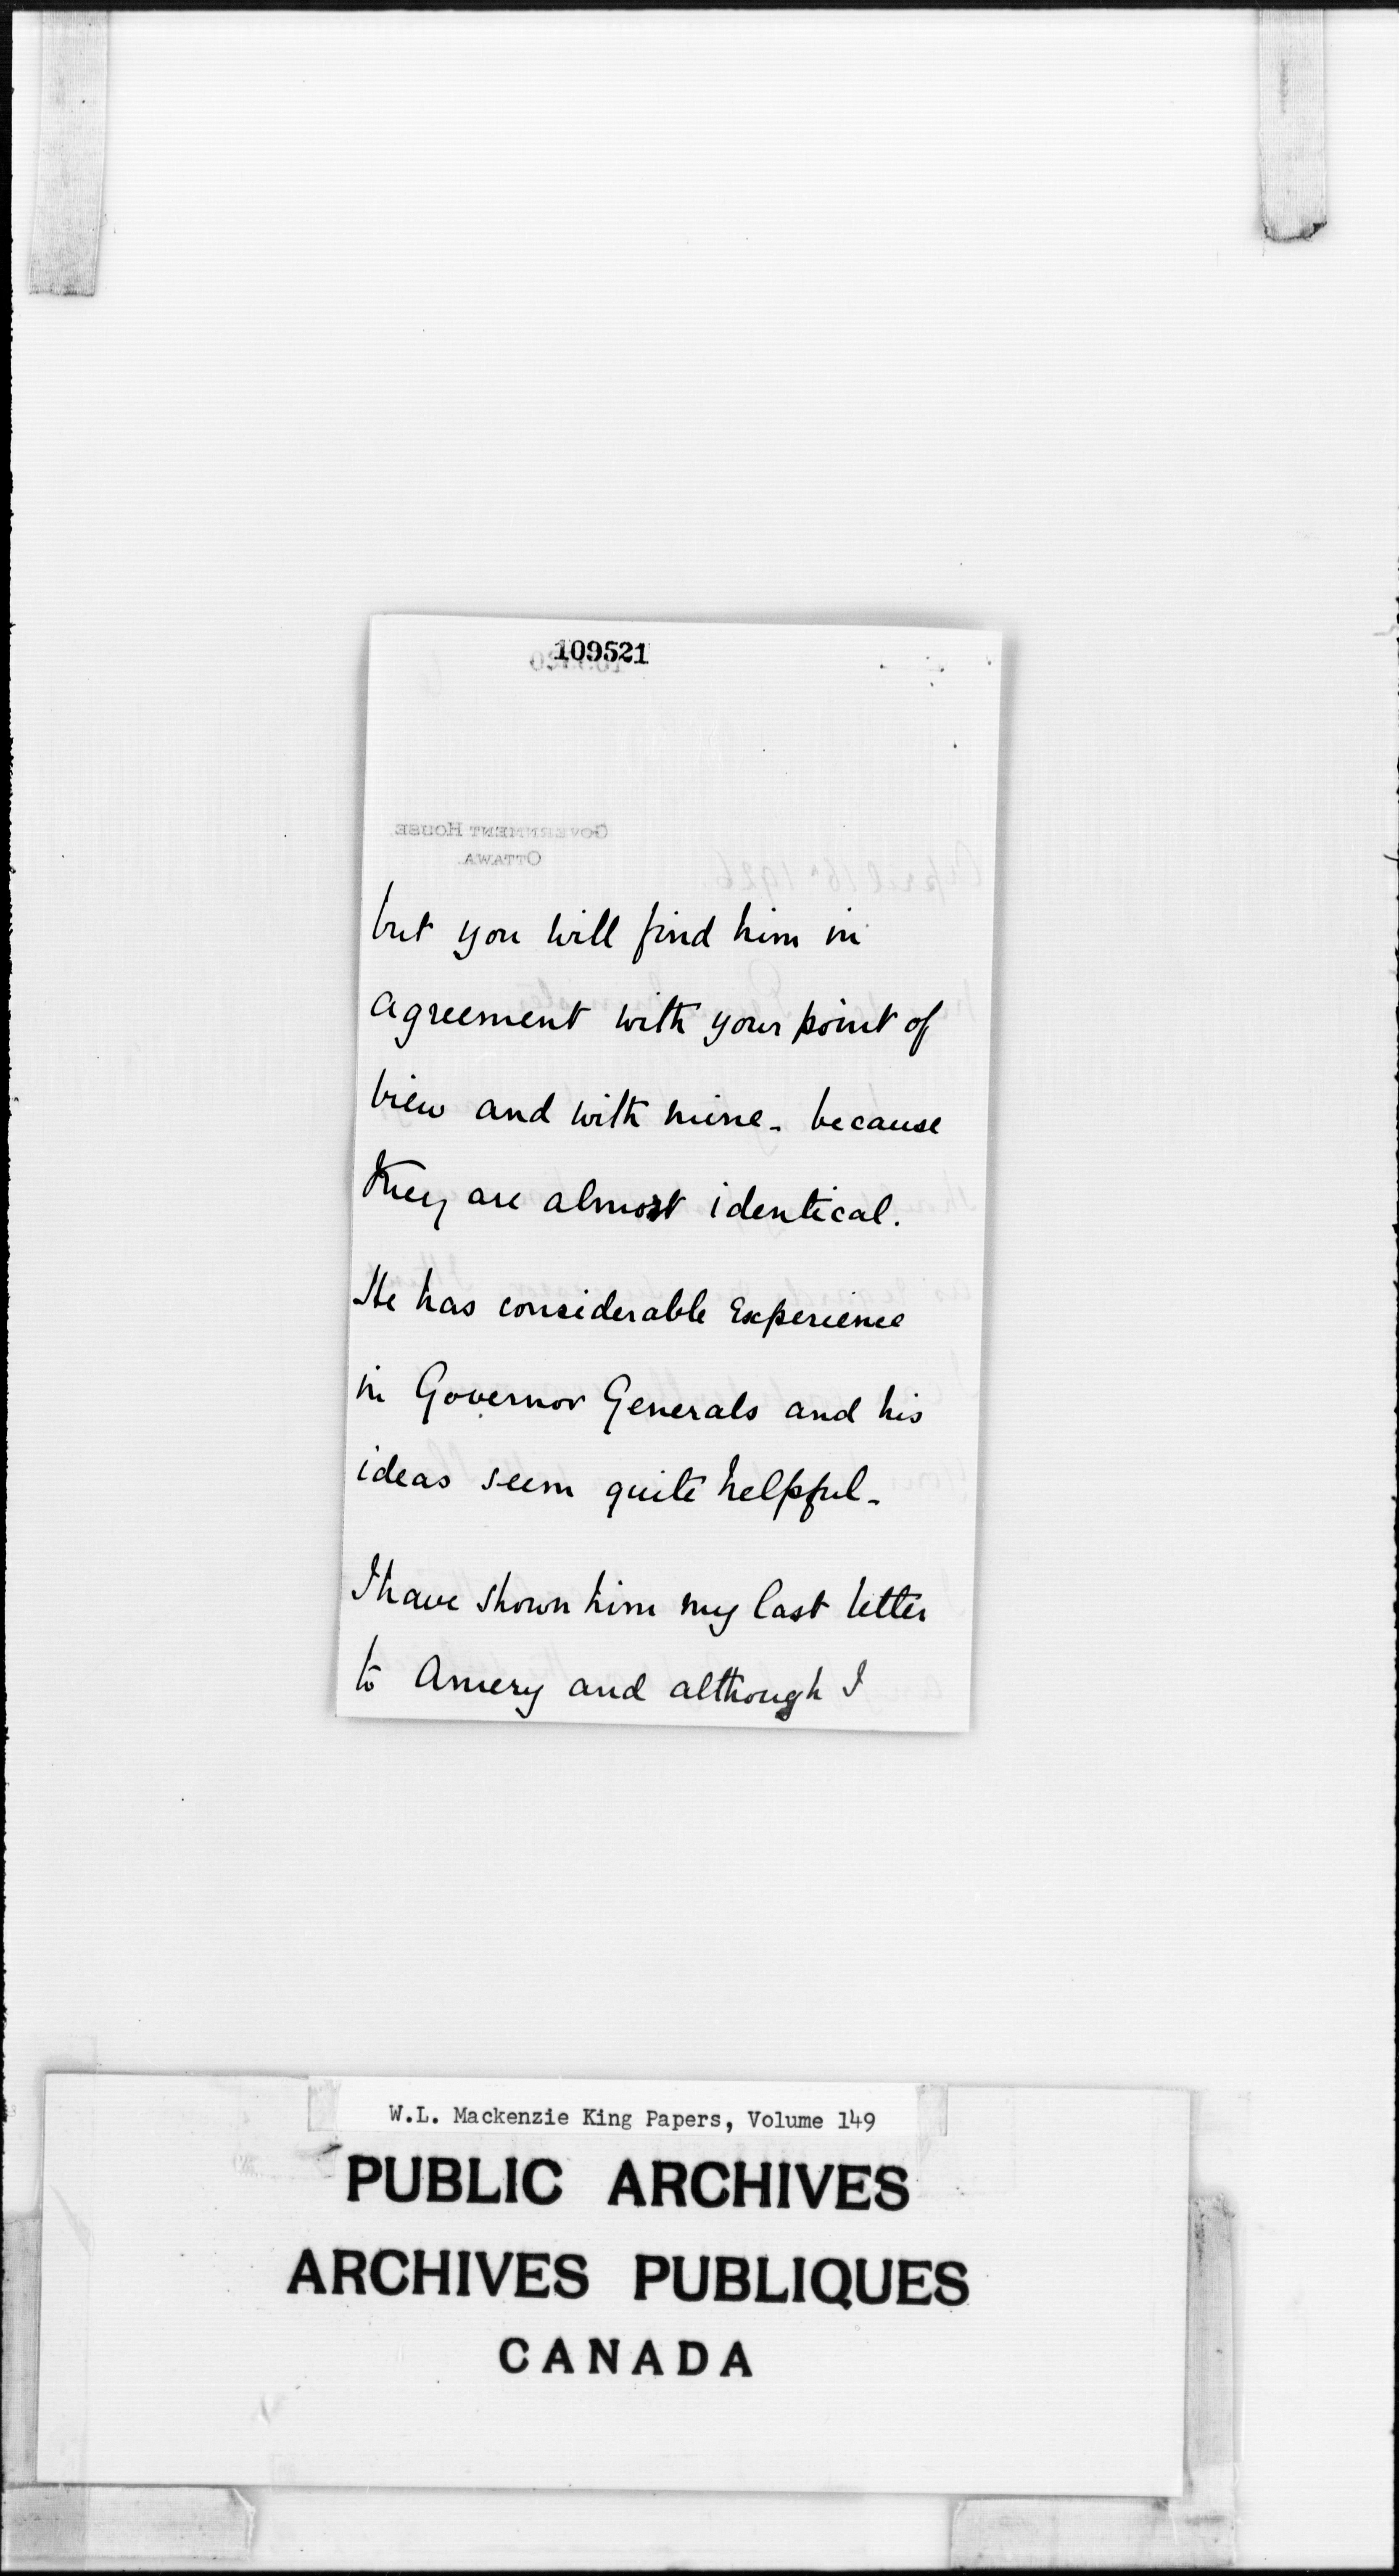 109521
GOVERNMENT HOUSE,
OTTAWA.
but you will find him in
agreement with your point of
view and with mine - because
they are almost identical.
He has considerable experience
in Governor Generals and his
ideas seem quite helpful -
I have shown him my last letter
to Amery and although I
W.L. Mackenzie King Papers, Volume 149
PUBLIC ARCHIVES
ARCHIVES PUBLIQUES
CANADA